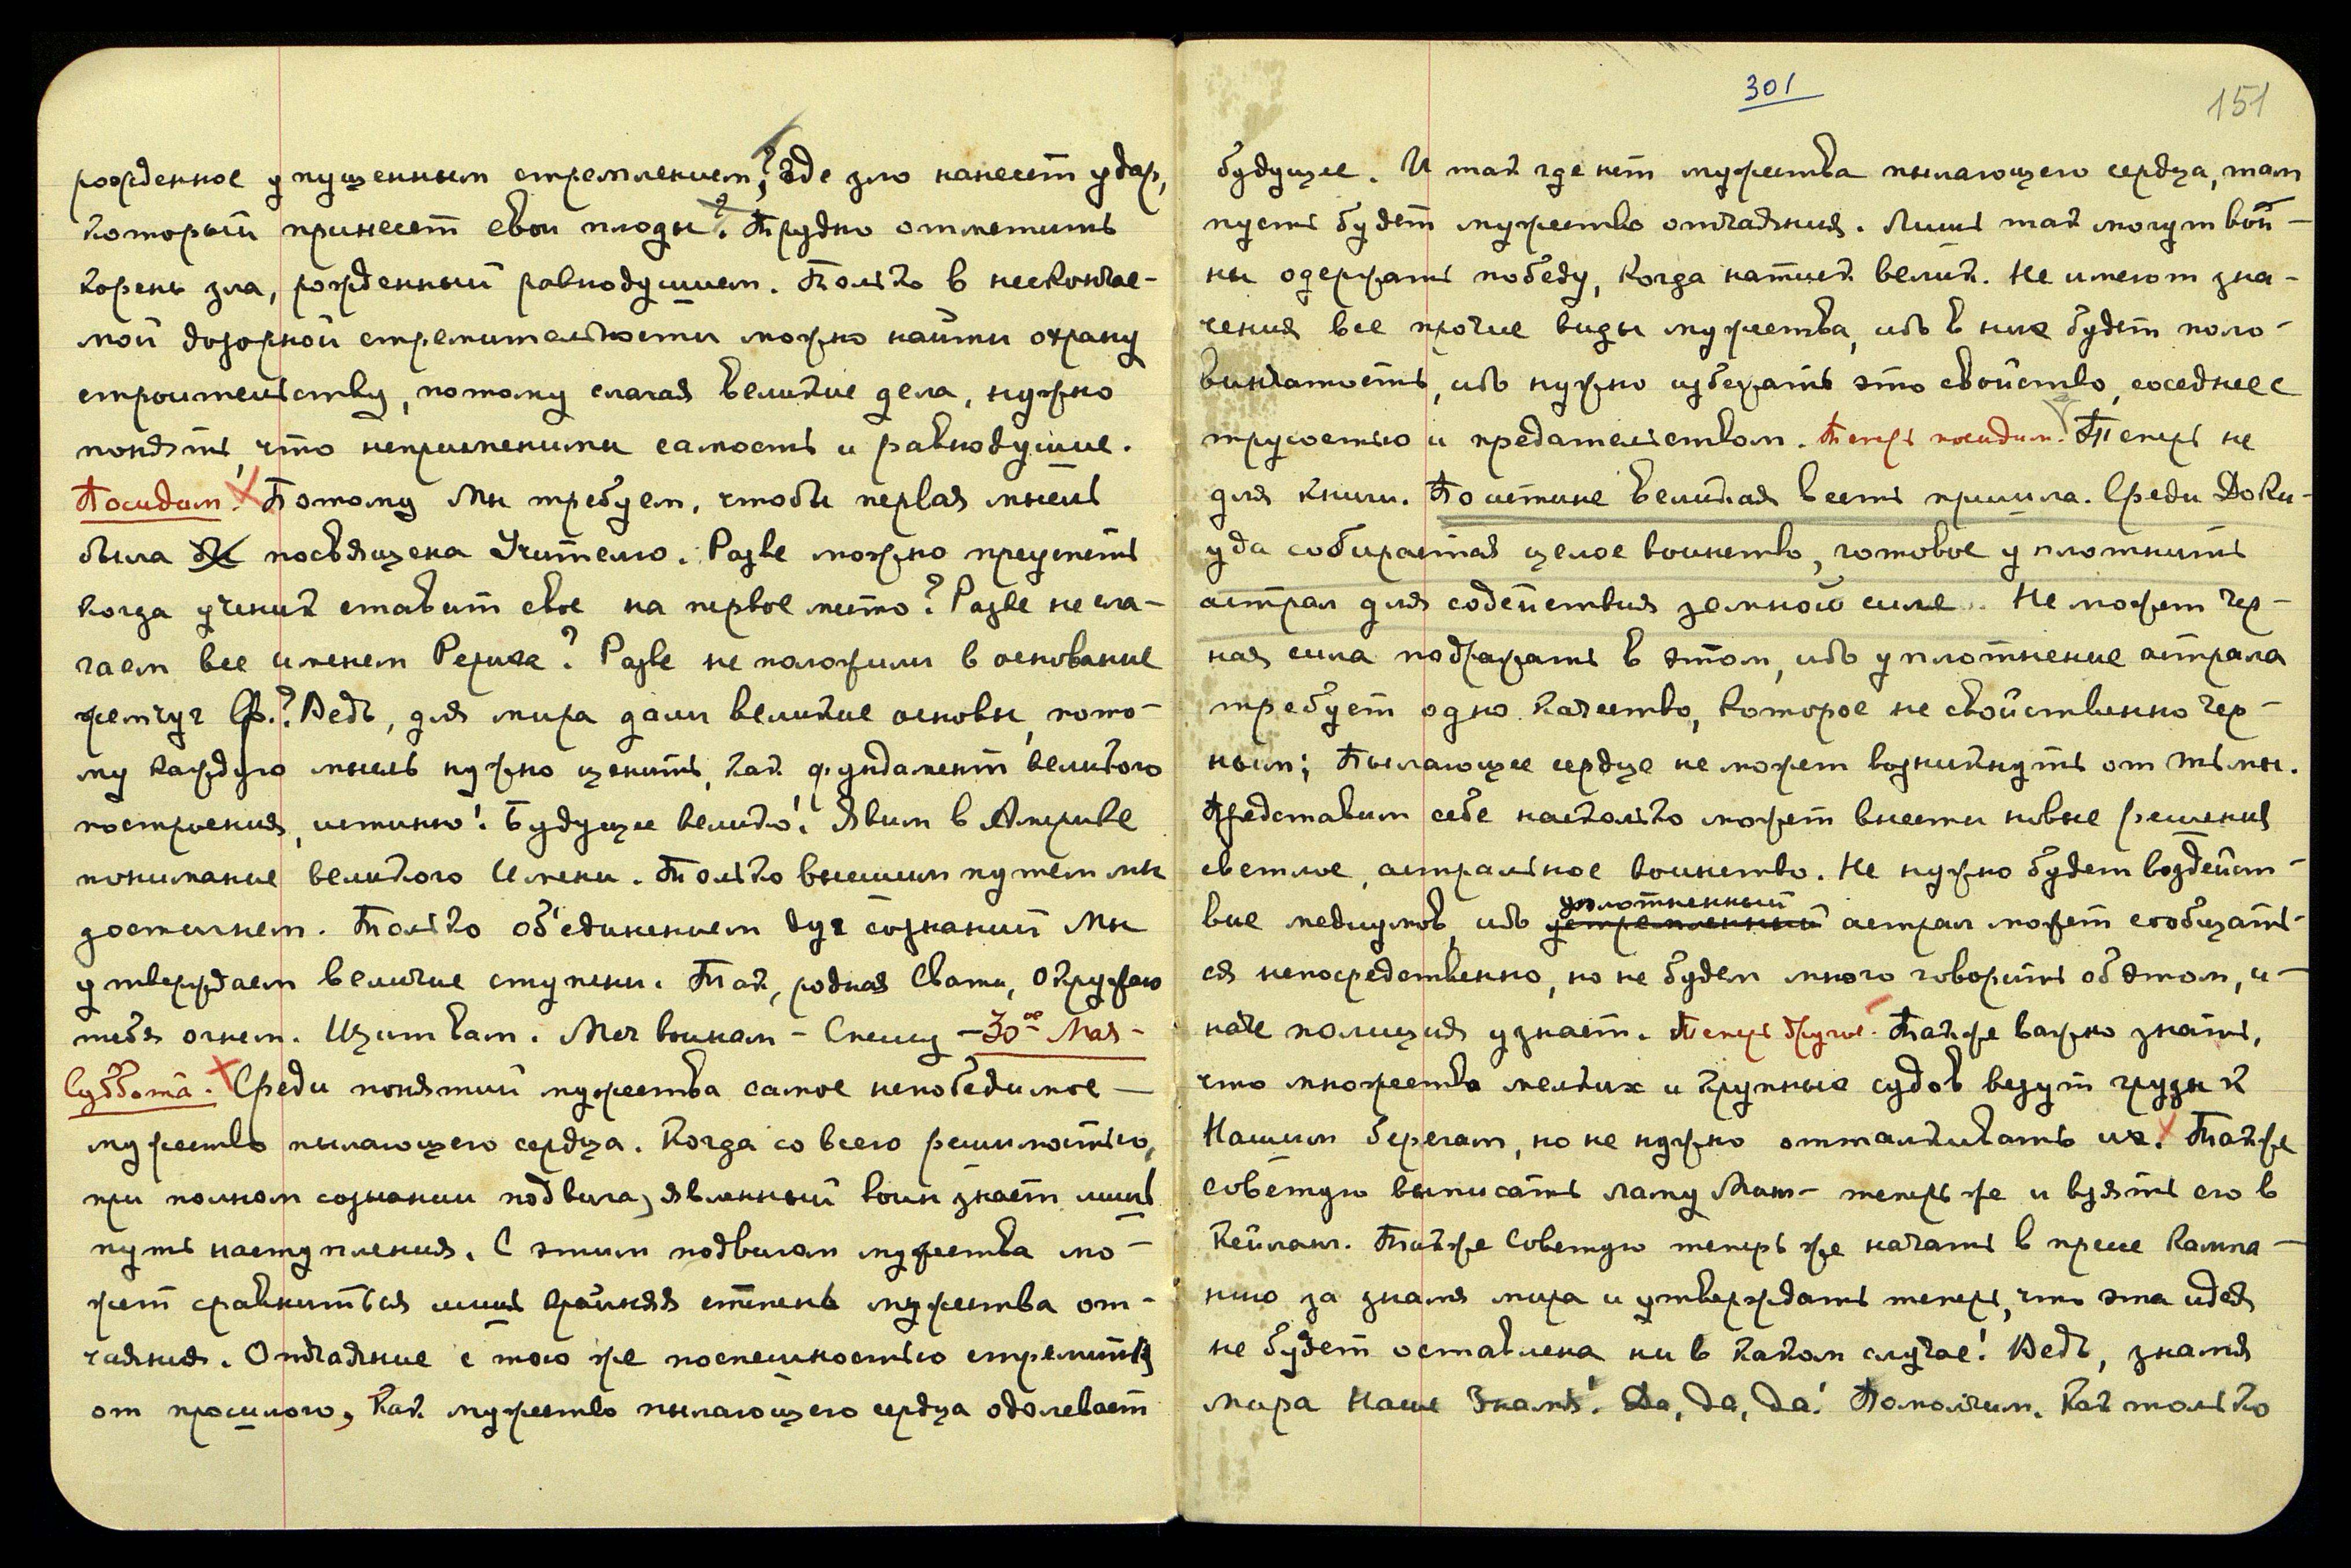 рожденное упущенным стремлением? Где зло нанесет удар,
который принесет свои плоды? Трудно отметить
корень зла, рожденный равнодушием. Только в нескончае-
мой дозорной стремительности можно найти охрану
строительству, потому слагая великие дела, нужно
понять, что неприменимы самость и равнодушие.
Посидим! Потому Мы требуем, чтобы первая мысль
была посвящена Учителю. Разве можно преуспеть
когда ученик ставит свое на первое место? Разве не сла-
гаем все именем Рериха? Разве не положили в основание
жемчуг Ф.? Ведь, для мира дали великие основы, пото-
му каждую мысль нужно ценить, как фундамент великого
построения, истинно! Будущее велико! Явим в Америке
понимание великого Имени. Только высшим путем мы
достигнем. Только об'единением дуг сознаний Мы
утверждаем величие ступени. Так, родная Свати, Окружаю
тебя огнем. Щит вам. Меч воинам - Спешу - 30ое Мая -
Суббота. Среди понятий мужества самое непобедимое —
мужество пылающего сердца. Когда со всею решимостью,
при полном сознании подвига, явленный воин знает лишь
путь наступления. С этим подвигом мужества мо-
жет сравниться лишь крайняя степень мужества от-
чаяния. Отчаяние с тою же поспешностью стремится
от прошлого, как мужество пылающего сердца одолевает
301
151
будущее. И так где нет мужества пылающего сердца, там
пусть будет мужество отчаяния. Лишь так могут вой-
ны одержать победу, когда натиск велик. Не имеют зна-
чения все прочие виды мужества, ибо в них будет поло-
винчатость, ибо нужно избежать это свойство, соседнее с
трусостью и предательством. Теперь посидим. Теперь не
для книги. Поистине великая весть пришла. Среди Доки-
уда собирается целое воинство, готовое уплотнить
астрал для содействия земной силе. Не может чер-
ная сила подражать в этом, ибо уплотнение астрала
требует одно качество, которое не свойственно чер-
ным; Пылающее сердце не может возникнуть от тьмы.
Представим себе насколько может внести новые решения
светлое, астральное воинство. Не нужно будет воздейст-
вие медиумов, ибо устремленный уплотненный астрал может сообщать-
ся непосредственно, но не будем много говорить об этом, и-
наче полиция узнает. Теперь другое. Также важно знать,
что множества мелких и крупных судов везут грузы к
Нашим берегам, но не нужно отталкивать их. Также
советую выписать ламу Минг- теперь же и взять его в
Кейланг. Также Советую теперь же начать в прессе кампа-
нию за знамя мира и утверждать теперь, что эта идея
не будет оставлена ни в каком случае! Ведь, знамя
мира Наше Знамя! Да, да, да! Помолчим. Как только